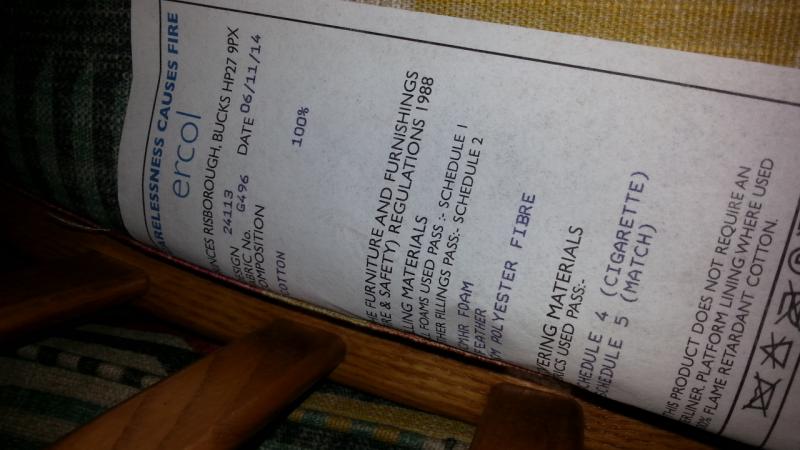 ARELESSNESS CAUSES FIRE
ercol
NCES RISBOROUGH, BUCKS HP27 9PX
ESIGN 24113 DATE 06/11/14
BRIC No. G496
OMPOSITION
COTTON 100%
HE FURNITURE AND FURNISHINGS
RE & SAFETY) REGULATIONS 1988
LLING MATERIALS
FOAMS USED PASS :- SCHEDULE 1
THER FILLINGS PASS:- SCHEDULE 2
CMHR FOAM
FEATHER
POLYESTER FIBRE
VERING MATERIALS
ICS USED PASS:-
CHEDULE 4 (CIGARETTE)
SCHEDULE 5 (MATCH)
HIS PRODUCT DOES NOT REQUIRE AN
RLINER. PLATFORM LINING WHERE USED
0% FLAME RETARDANT COTTON.